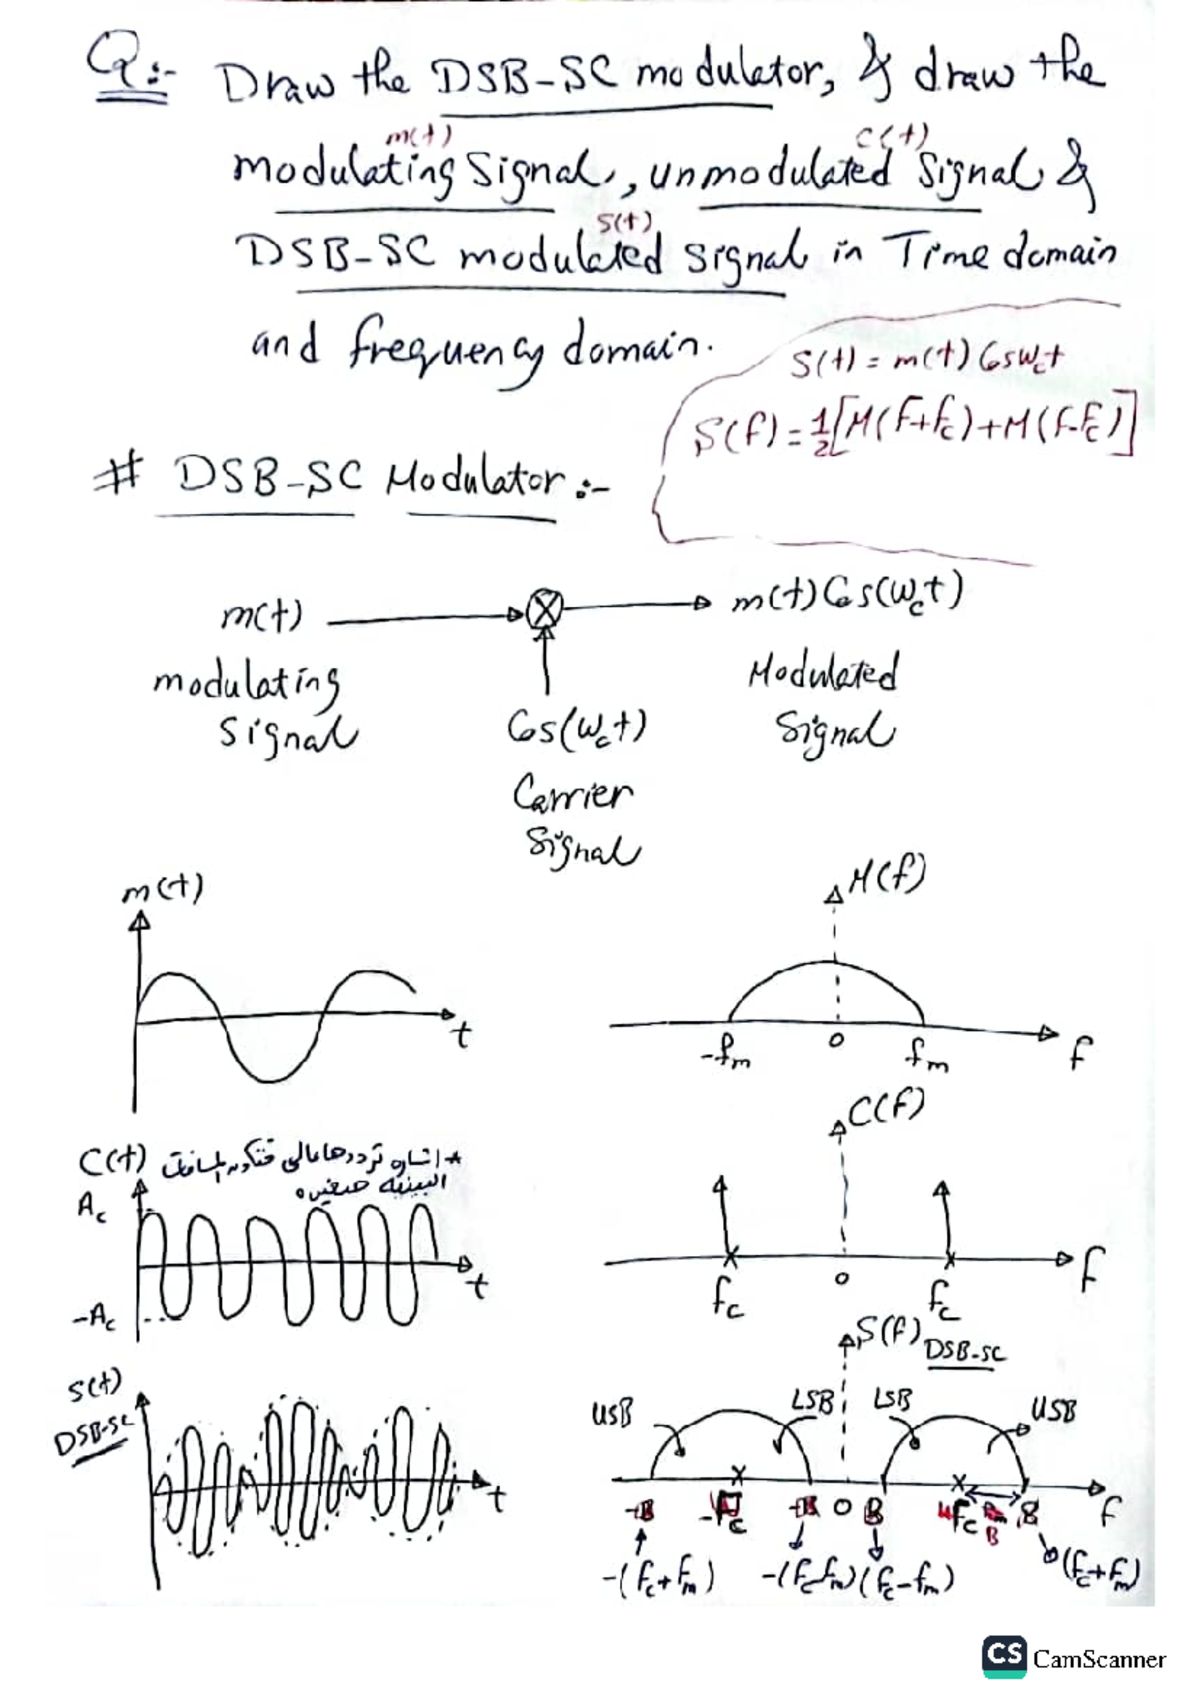 Q:- Draw the DSB-SC modulator, & draw the
m(t) c(t)
modulating Signal, unmodulated Signal &
s(t)
DSB-SC modulated signal in Time domain
and frequency domain.
S(t) = m(t) Cos ωct
S(f) = 1/2 [M(f+fc) + M(f-fc)]
# DSB-SC Modulator :-
m(t)
m(t) Cos(ωct)
modulating
Signal
Modulated
Signal
Cos(ωct)
Carrier
Signal
m(t)
t
M(f)
-fm 0 fm f
C(t)
* اشاره ترددها عالي فتكون المسافات
البينيه صغيره
Ac
-Ac
t
C(f)
fc 0 fc f
S(t)
DSB-SC
t
S(f) DSB-SC
USB LSB LSB USB
-fc 0 B fc B f
-(fc+fm) -(fc-fm) (fc-fm) (fc+fm)
CS CamScanner